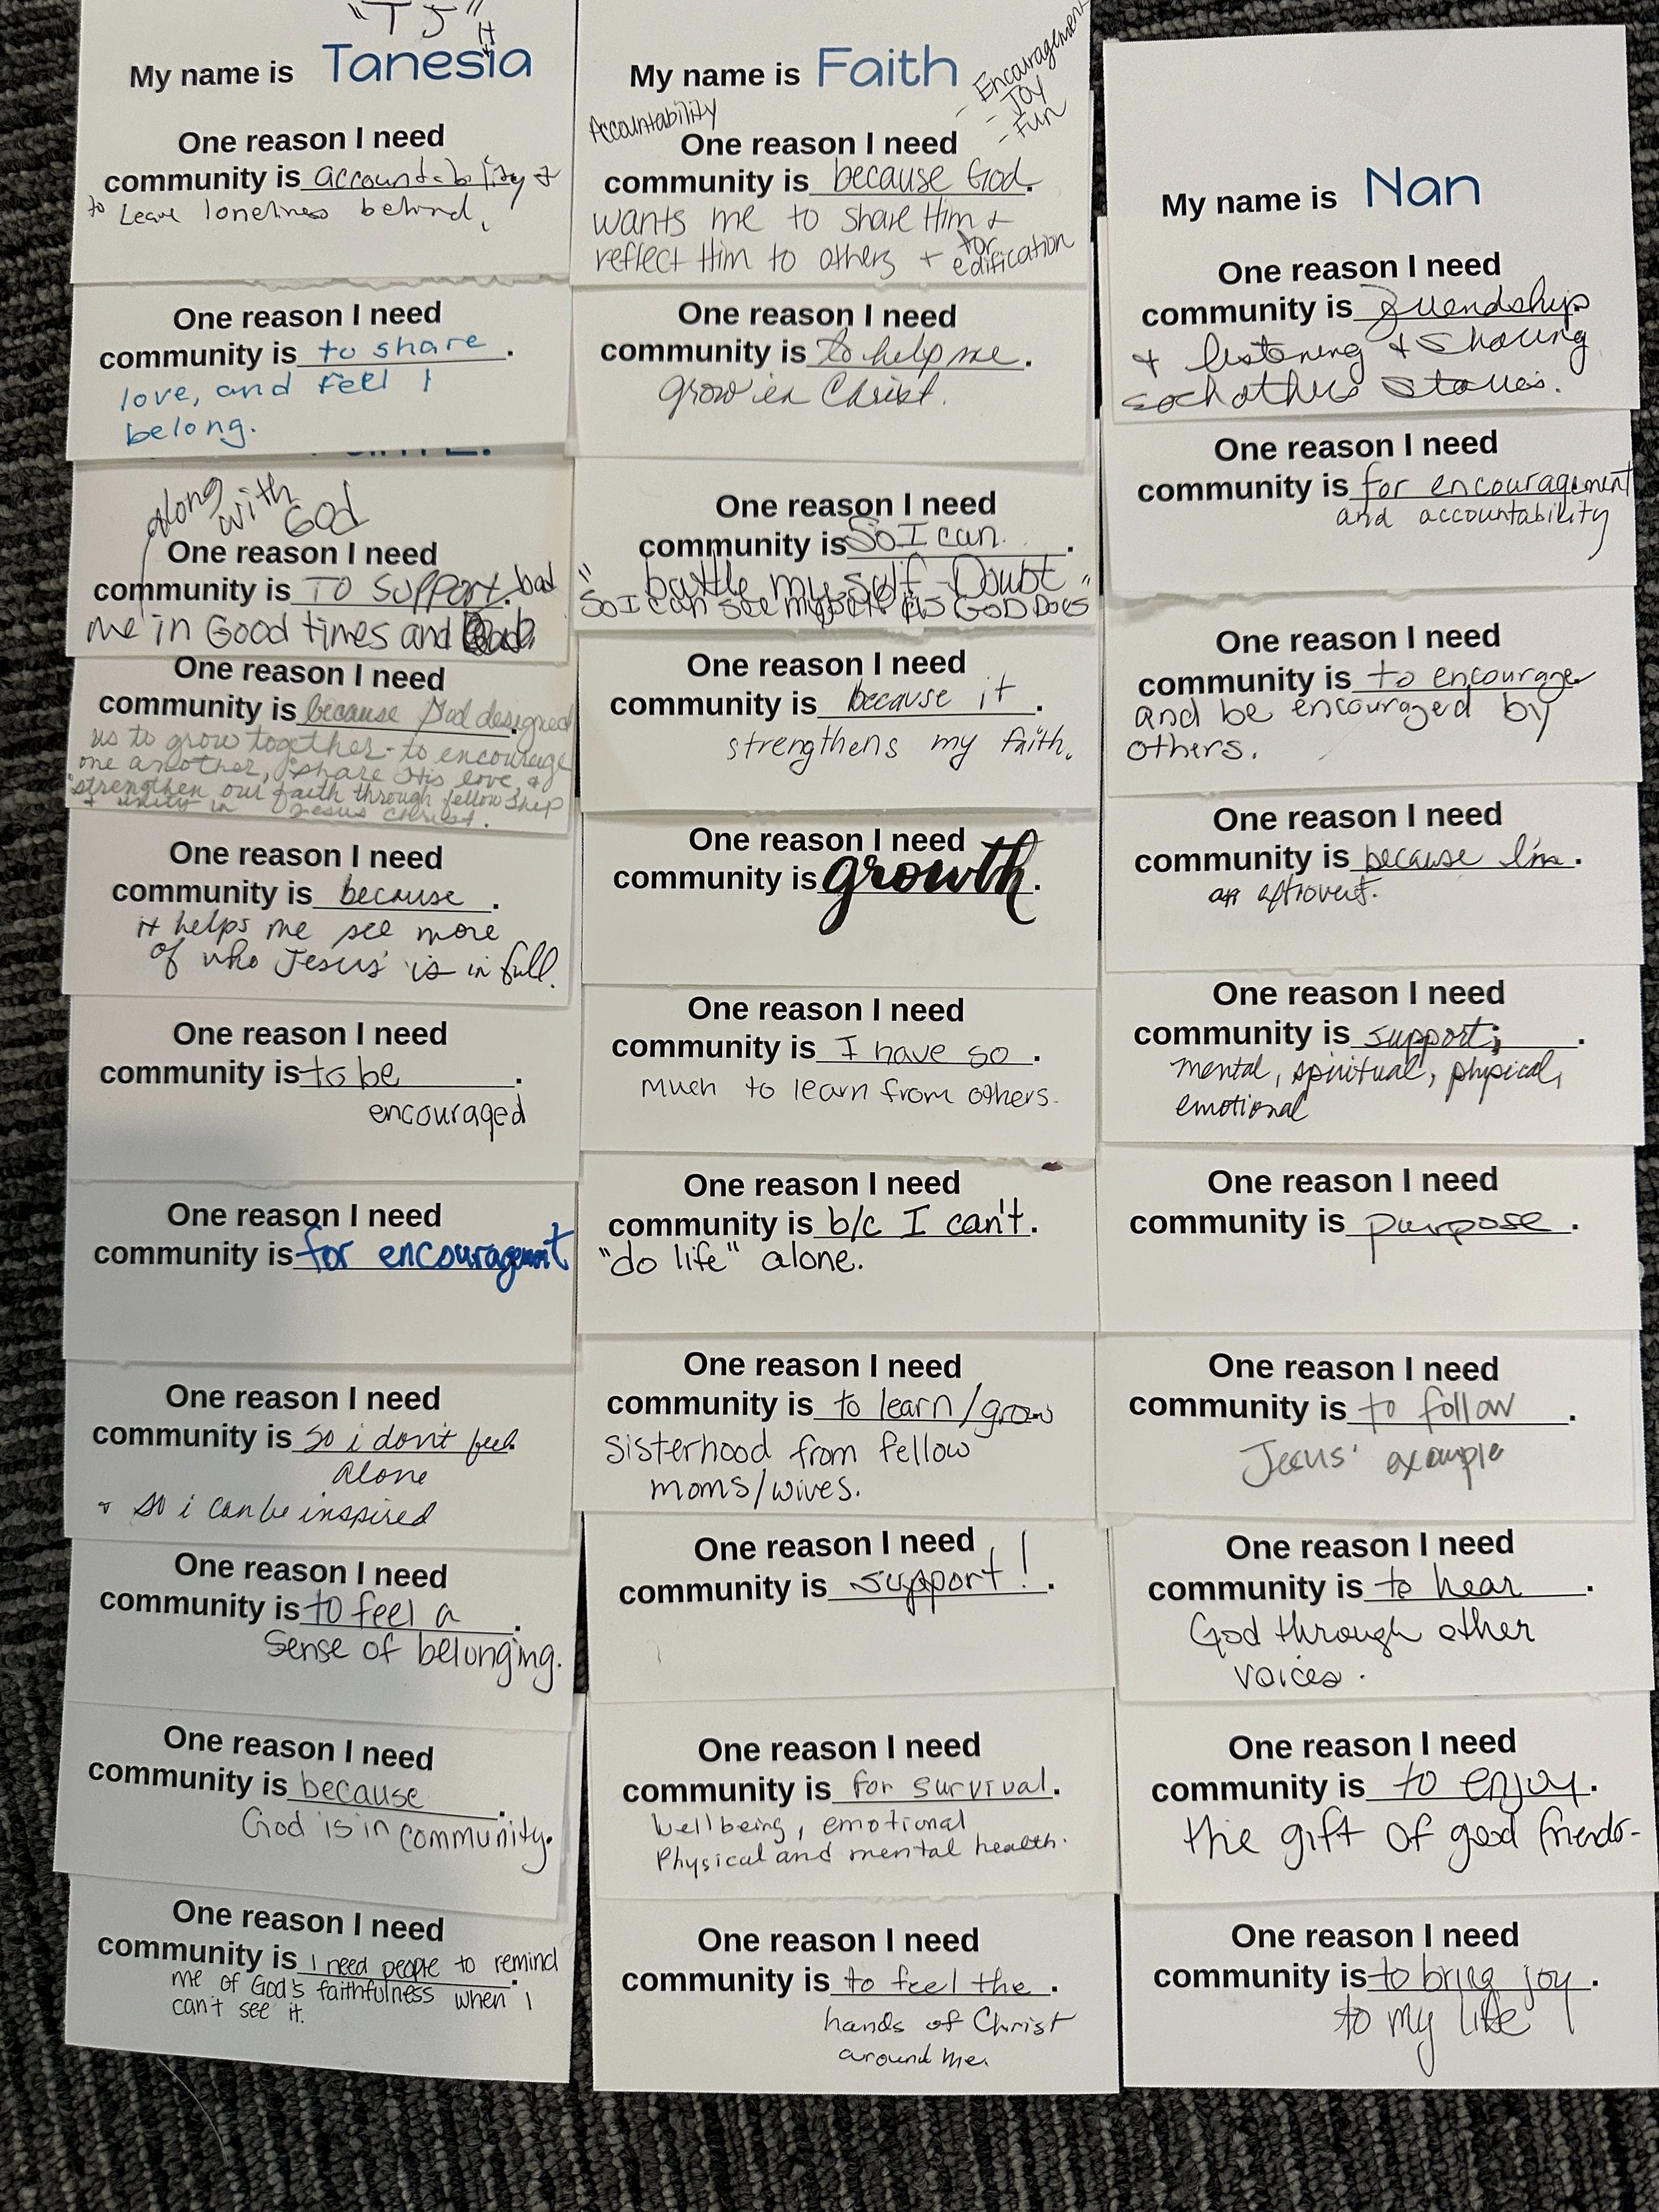 "TJ"
H
My name is Tanesia
One reason I need
community is accountability &
to Leave loneliness behind.
One reason I need
community is to share.
love, and feel I
belong.
along
with
God
One reason I need
community is TO Support. bad
me in Good times and
One reason I need
community is because God designed.
us to grow together - to encourage
one another, share His love, &
strengthen our faith through fellowship
+ unity in Jesus Christ.
One reason I need
community is because.
it helps me see more
of who Jesus is in full.
One reason I need
community is to be.
encouraged
One reason I need
community is for encouragement
One reason I need
community is so i don't feel.
alone
+ so i can be inspired
One reason I need
community is to feel a.
sense of belonging.
One reason I need
community is because.
God is in community.
One reason I need
community is I need people to remind.
me of God's faithfulness when I
can't see it.
My name is Faith
Accountability
- Encouragement
- Joy
- Fun
One reason I need
community is because God.
wants me to share Him +
reflect Him to others + for
edification
One reason I need
community is to help me.
grow in Christ.
One reason I need
community is So I can.
"battle my self-Doubt"
So I can see myself as GOD DOES
One reason I need
community is because it.
strengthens my faith.
One reason I need
community is growth.
One reason I need
community is I have so.
much to learn from others.
One reason I need
community is b/c I can't.
"do life" alone.
One reason I need
community is to learn/grow
sisterhood from fellow
moms/wives.
One reason I need
community is support!.
One reason I need
community is for survival.
wellbeing, emotional
Physical and mental health.
One reason I need
community is to feel the.
hands of Christ
around me.
My name is Nan
One reason I need
community is friendship
+ listening + sharing
eachothers stories.
One reason I need
community is for encouragement
and accountability
One reason I need
community is to encourage.
and be encouraged by
others.
One reason I need
community is because I'm.
an extrovert.
One reason I need
community is support;.
mental, spiritual, physical,
emotional
One reason I need
community is purpose.
One reason I need
community is to follow.
Jesus' example
One reason I need
community is to hear.
God through other
voices.
One reason I need
community is to enjoy.
the gift of good friends-
One reason I need
community is to bring joy.
to my life